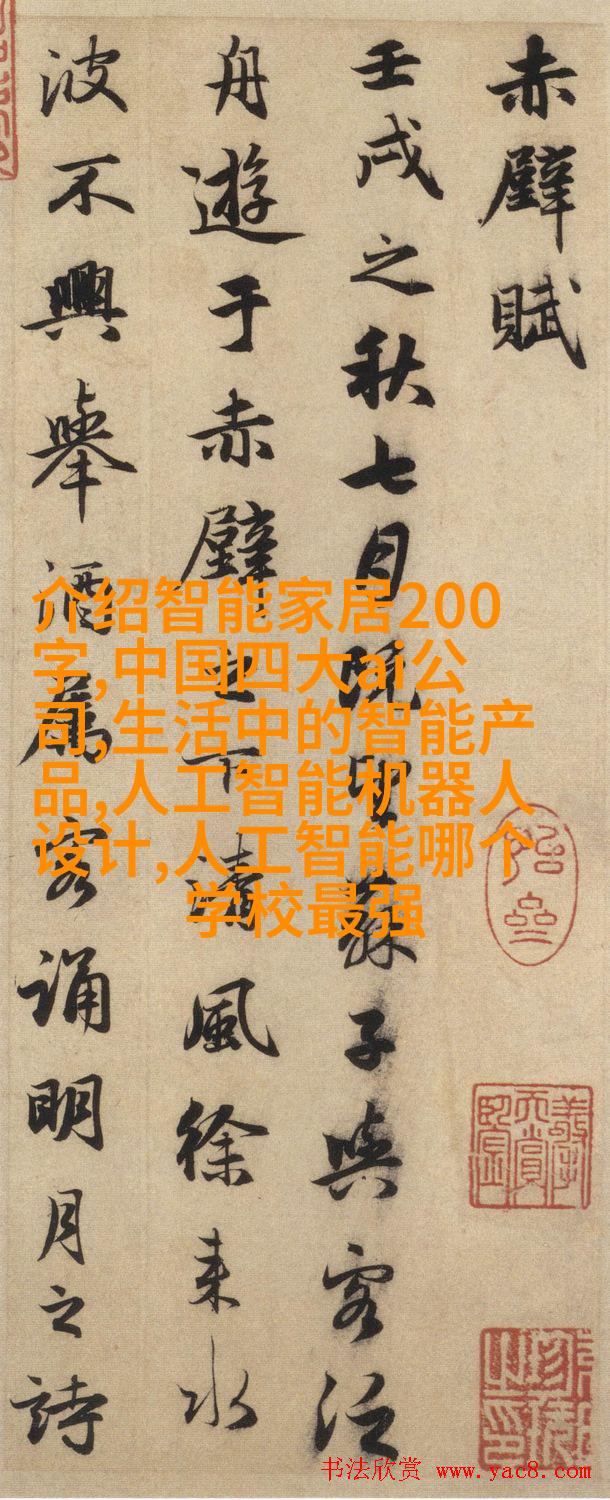 赤壁賦
壬戌之秋七月既望蘇子與客泛
舟遊于赤壁之下清風徐来水
波不興舉酒屬客誦明月之詩
介绍智能家居200
字,中国四大ai公
司,生活中的智能产
品,人工智能机器人
设计,人工智能哪个
学校最强
书法欣赏 www.yac8.com